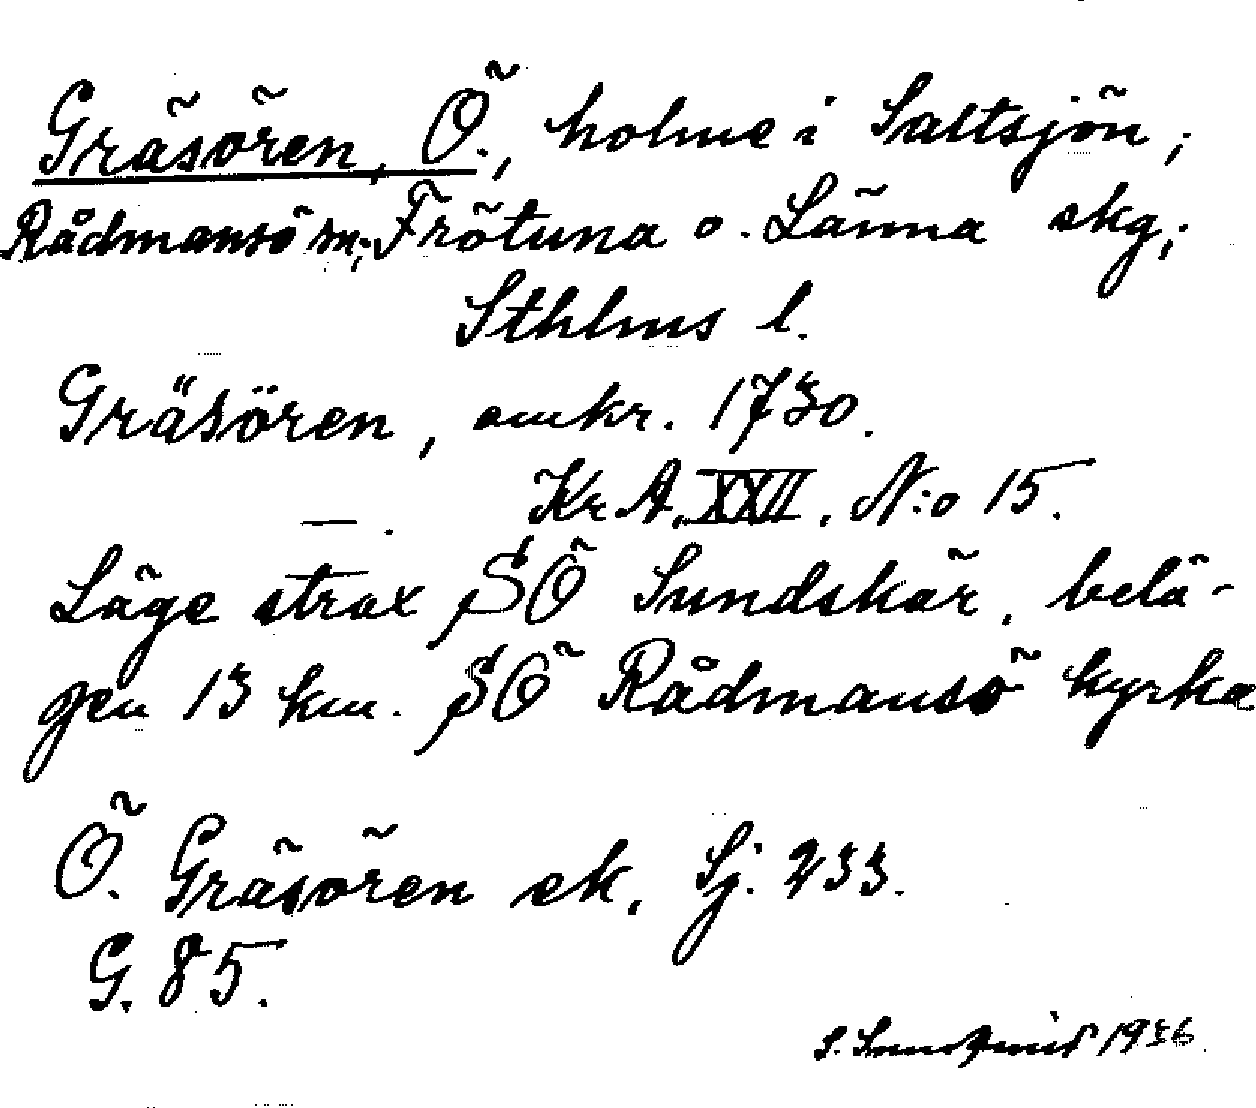 Gräsören, Ö., holme i Saltsjön;
Rådmansö sn; Frötuna o. Länna skg;
Sthlms l.
Gräsören, omkr. 1730.
—. Kr. A. XXII. N:o 15.
Läge strax SÖ Sundskär, belä-
gen 13 km. SÖ Rådmansö kyrka
Ö. Gräsören ek. Sj. 233.
G. 85.
S. 1936